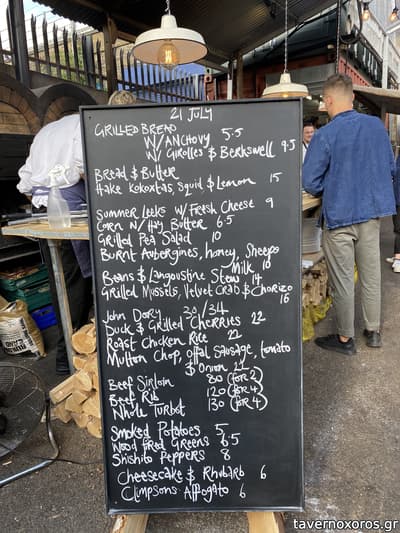 21 JULY
GRILLED BREAD
W/ ANCHOVY 5.5
W/ GIROLLES & BERKSWELL 9.5
Bread & Butter
Hake Kokoxtas, Squid & Lemon 15
Summer Leeks w/ Fresh Cheese 9
Corn w/ Hay Butter 6.5
Grilled Pea Salad 10
Burnt Aubergines, honey, Sheeps
Milk 10
Beans & Langoustine Stew 14
Grilled Mussels, Velvet Crab & Chorizo
16
John Dory 30/34
Duck & Grilled Cherries 22
Roast Chicken Rice 21
Mutton Chop, offal sausage, tomato
& Onion
Beef Sirloin 80 (for 2)
Beef Rib 120 (for 4)
Whole Turbot 130 (for 4)
Smoked Potatoes 5
Wood Fired Greens 6.5
Shishito Peppers 8
Cheesecake & Rhubarb 6
Climpsons Affogato 6
tavernoxoros.gr